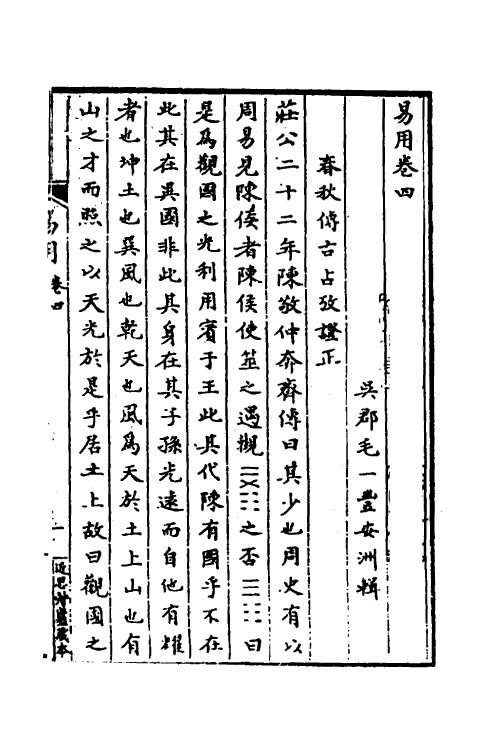 易用卷四
吳郡毛一豐安洲輯
春秋傳古占攷證正
莊公二十二年陳敬仲奔齊傳曰其少也周史有以
周易見陳侯者陳侯使筮之遇觀之否曰
是爲觀國之光利用賓于王此其代陳有國乎不在
此其在異國非此其身在其子孫光遠而自他有耀
者也坤土也巽風也乾天也風爲天於土上山也有
山之才而照之以天光於是乎居土上故曰觀國之
易用 卷四
一
藏本